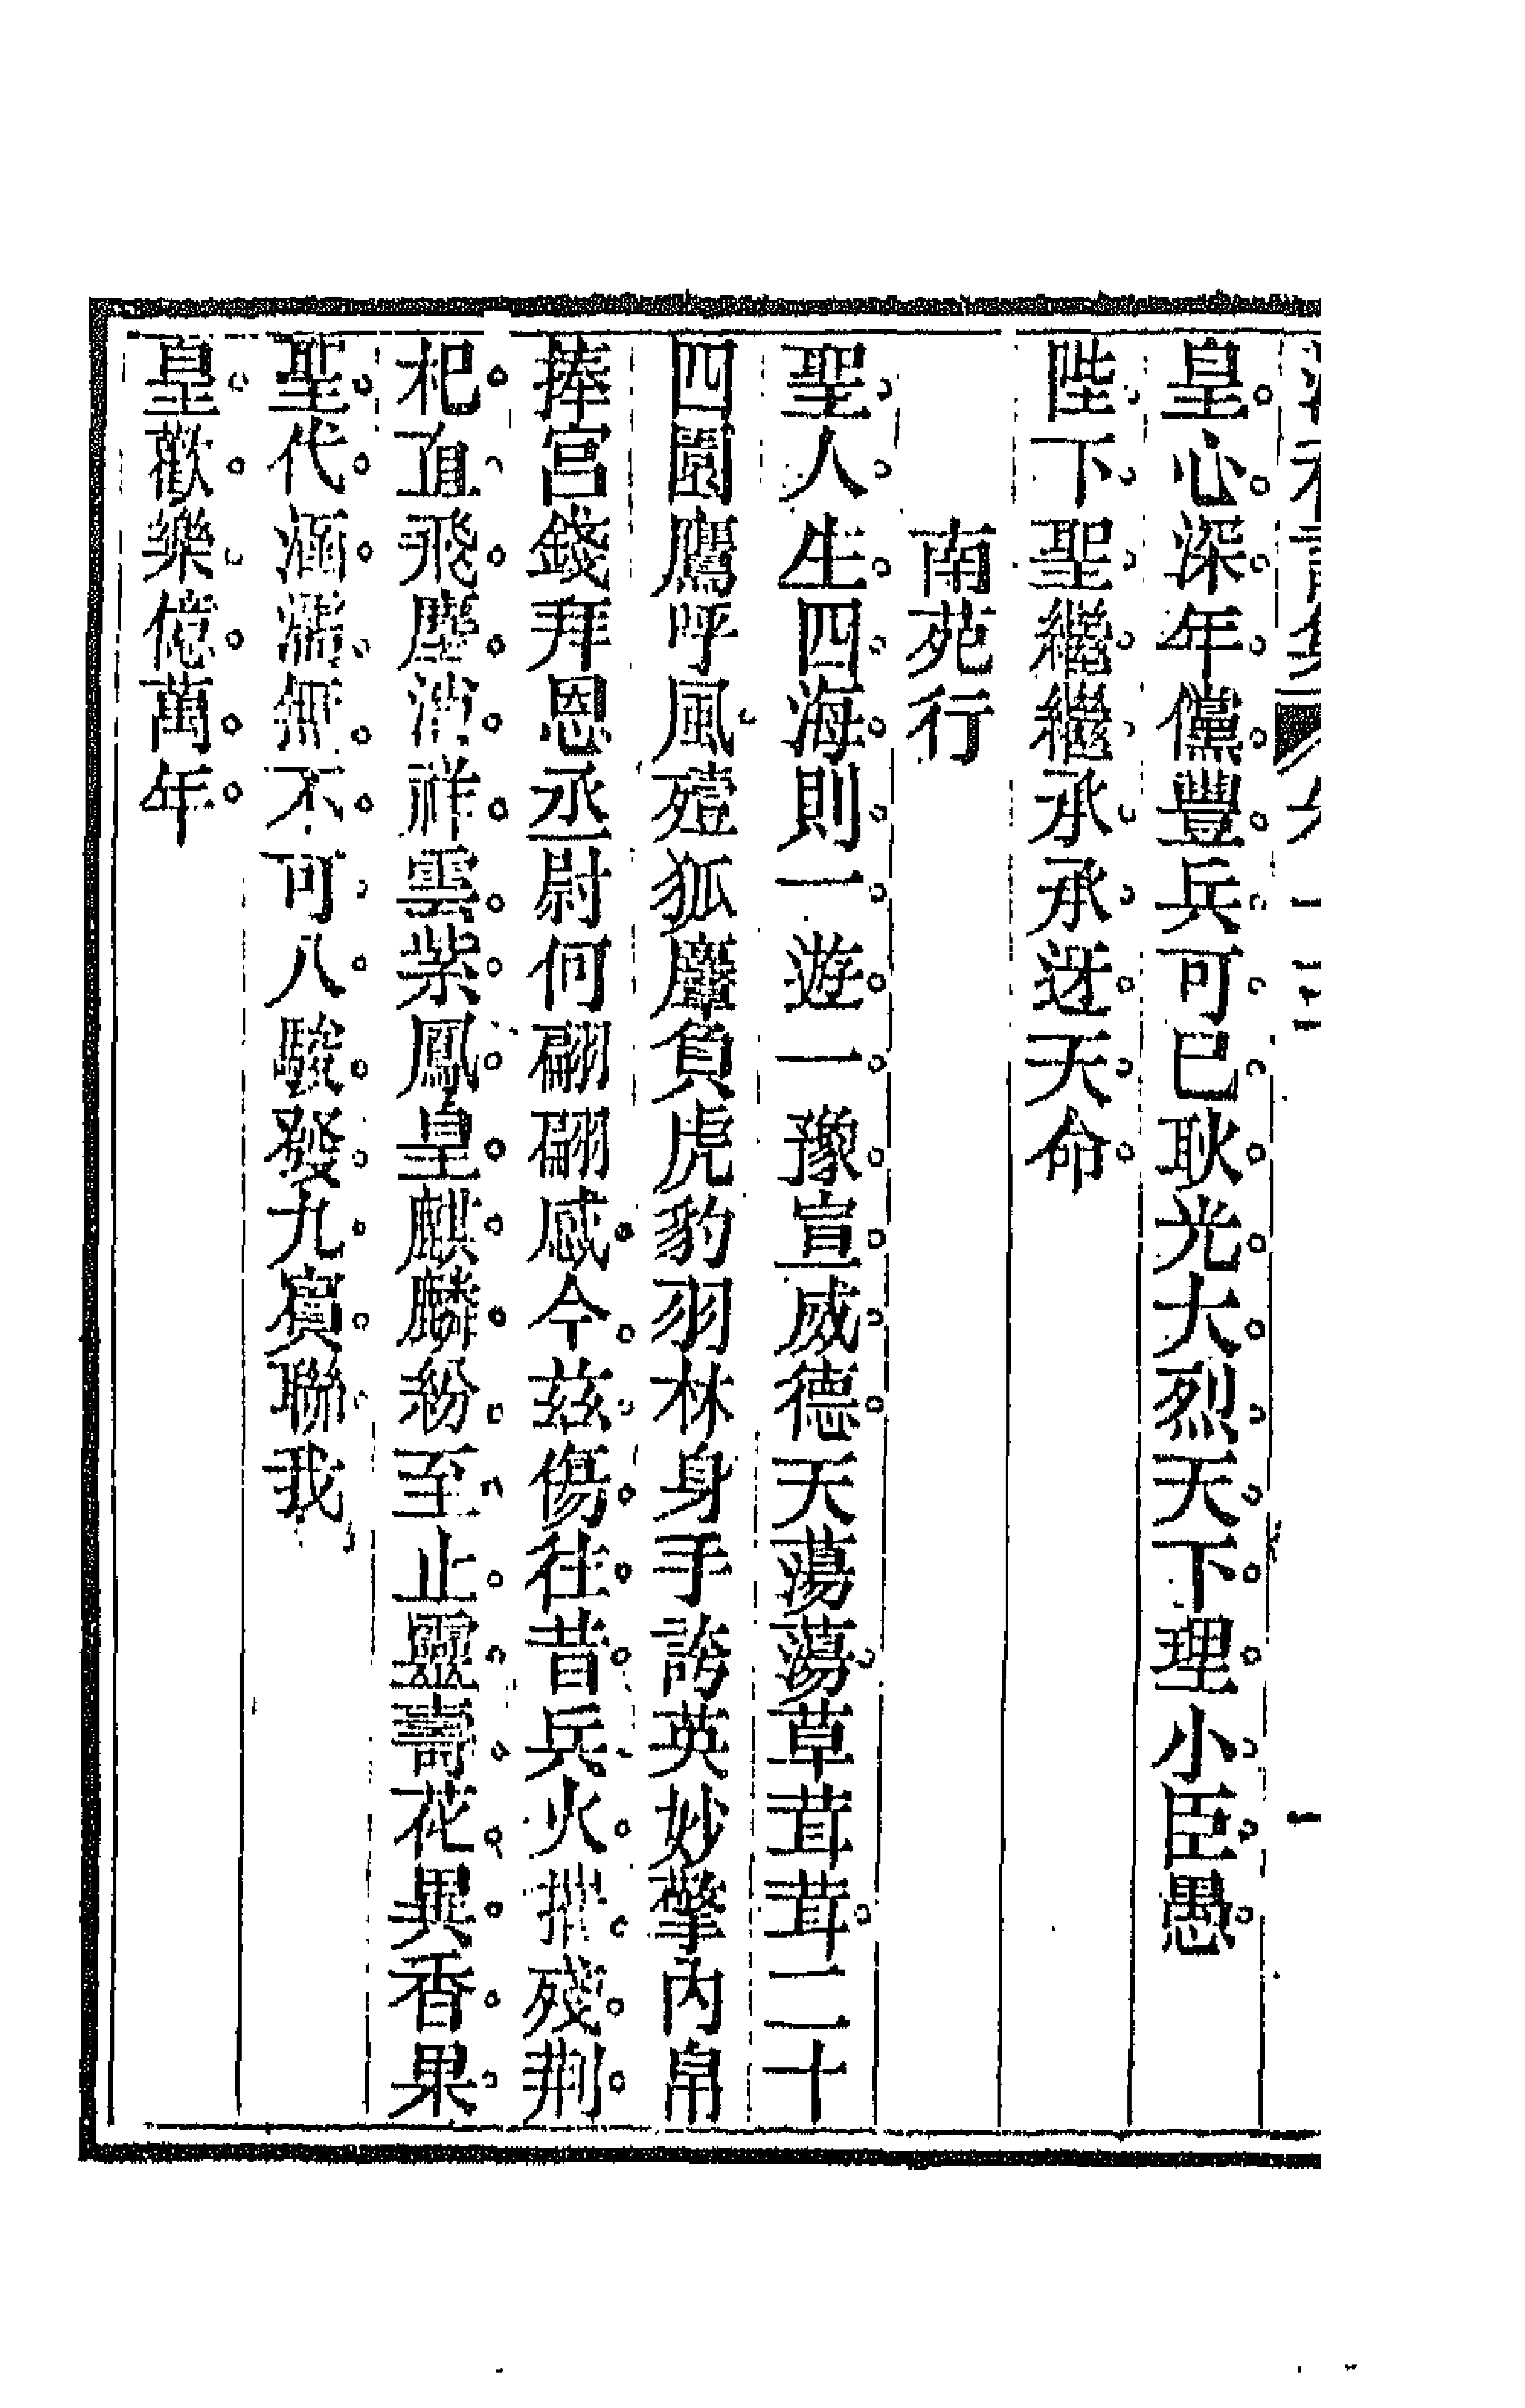 皇心深年儻豐兵可巳耿光大烈天下理小臣愚
陛下聖繼繼承承迓天命
南苑行
聖人生四海則一遊一豫宣威德天蕩蕩草茸茸二十
四園鷹呼風殪狐麞負虎豹羽林身手誇英妙擎內帛
捧宮錢拜恩丞尉何翩翩感今茲傷往昔兵火摧殘荆
杞直飛塵消祥雲紫鳳皇麒麟紛至止靈壽花異香果
聖代涵濡無不可八駿發九賓聯我
皇歡樂億萬年